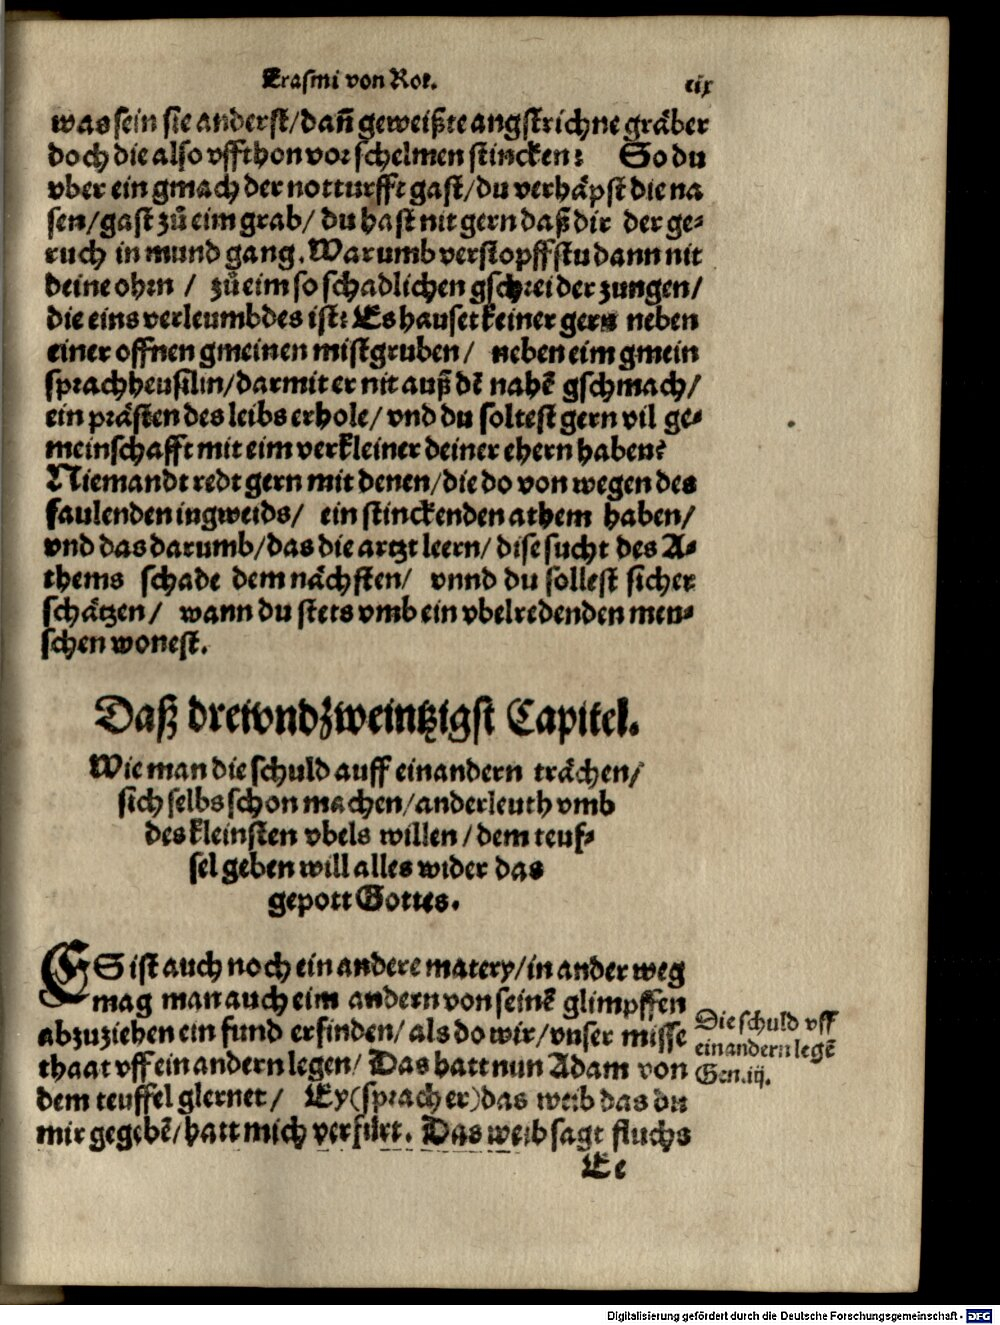 Erasmi von Rot. cix
was sein sie anderst/dañ geweißte angstrichne gräber
doch die also vffthon vor schelmen stincken: So du
vber ein gmach der notturfft gast/du verhäpst die na
sen/gast zů eim grab/ du hast nit gern daß dir der ge⸗
ruch in mund gang. Warumb verstopffstu dann nit
deine ohrn / zů eim so schadlichen gschrei der zungen/
die eins verleumbdes ist: Es hauset keiner gern neben
einer offnen gmeinen mistgruben/ neben eim gmein
sprachheusilin/darmit er nit auß dē nahē gschmach/
ein prästen des leibs erhole/ vnd du soltest gern vil ge⸗
meinschafft mit eim verkleiner deiner ehern haben?
Niemandt redt gern mit denen/die do von wegen des
faulenden ingweids/ ein stinckenden athem haben/
vnd das darumb/das die artzt leern/ dise sucht des A⸗
thems schade dem nächsten/ vnnd du sollest sicher
schätzen/ wann du stets vmb ein vbelredenden men⸗
schen wonest.
Daß dreivndzweintzigst Capitel.
Wie man die schuld auff einandern trächen/
sich selbs schon machen/anderleuth vmb
des kleinsten vbels willen/dem teuf⸗
fel geben will alles wider das
gepott Gottes.
ES ist auch noch ein andere matery/in ander weg
mag man auch eim andern von seinē glimpffen
abzuziehen ein fund erfinden/ als do wir/vnser misse
thaat vff ein andern legen/ Das hatt nun Adam von
dem teuffel glernet/ Ey(sprach er)das weib das du
mir gegebē/hatt mich verfürt. Das weib sagt fluchs
Die schuld vff
einandern legē
Gen.iij.
Ee
Digitalisierung gefördert durch die Deutsche Forschungsgemeinschaft - DFG